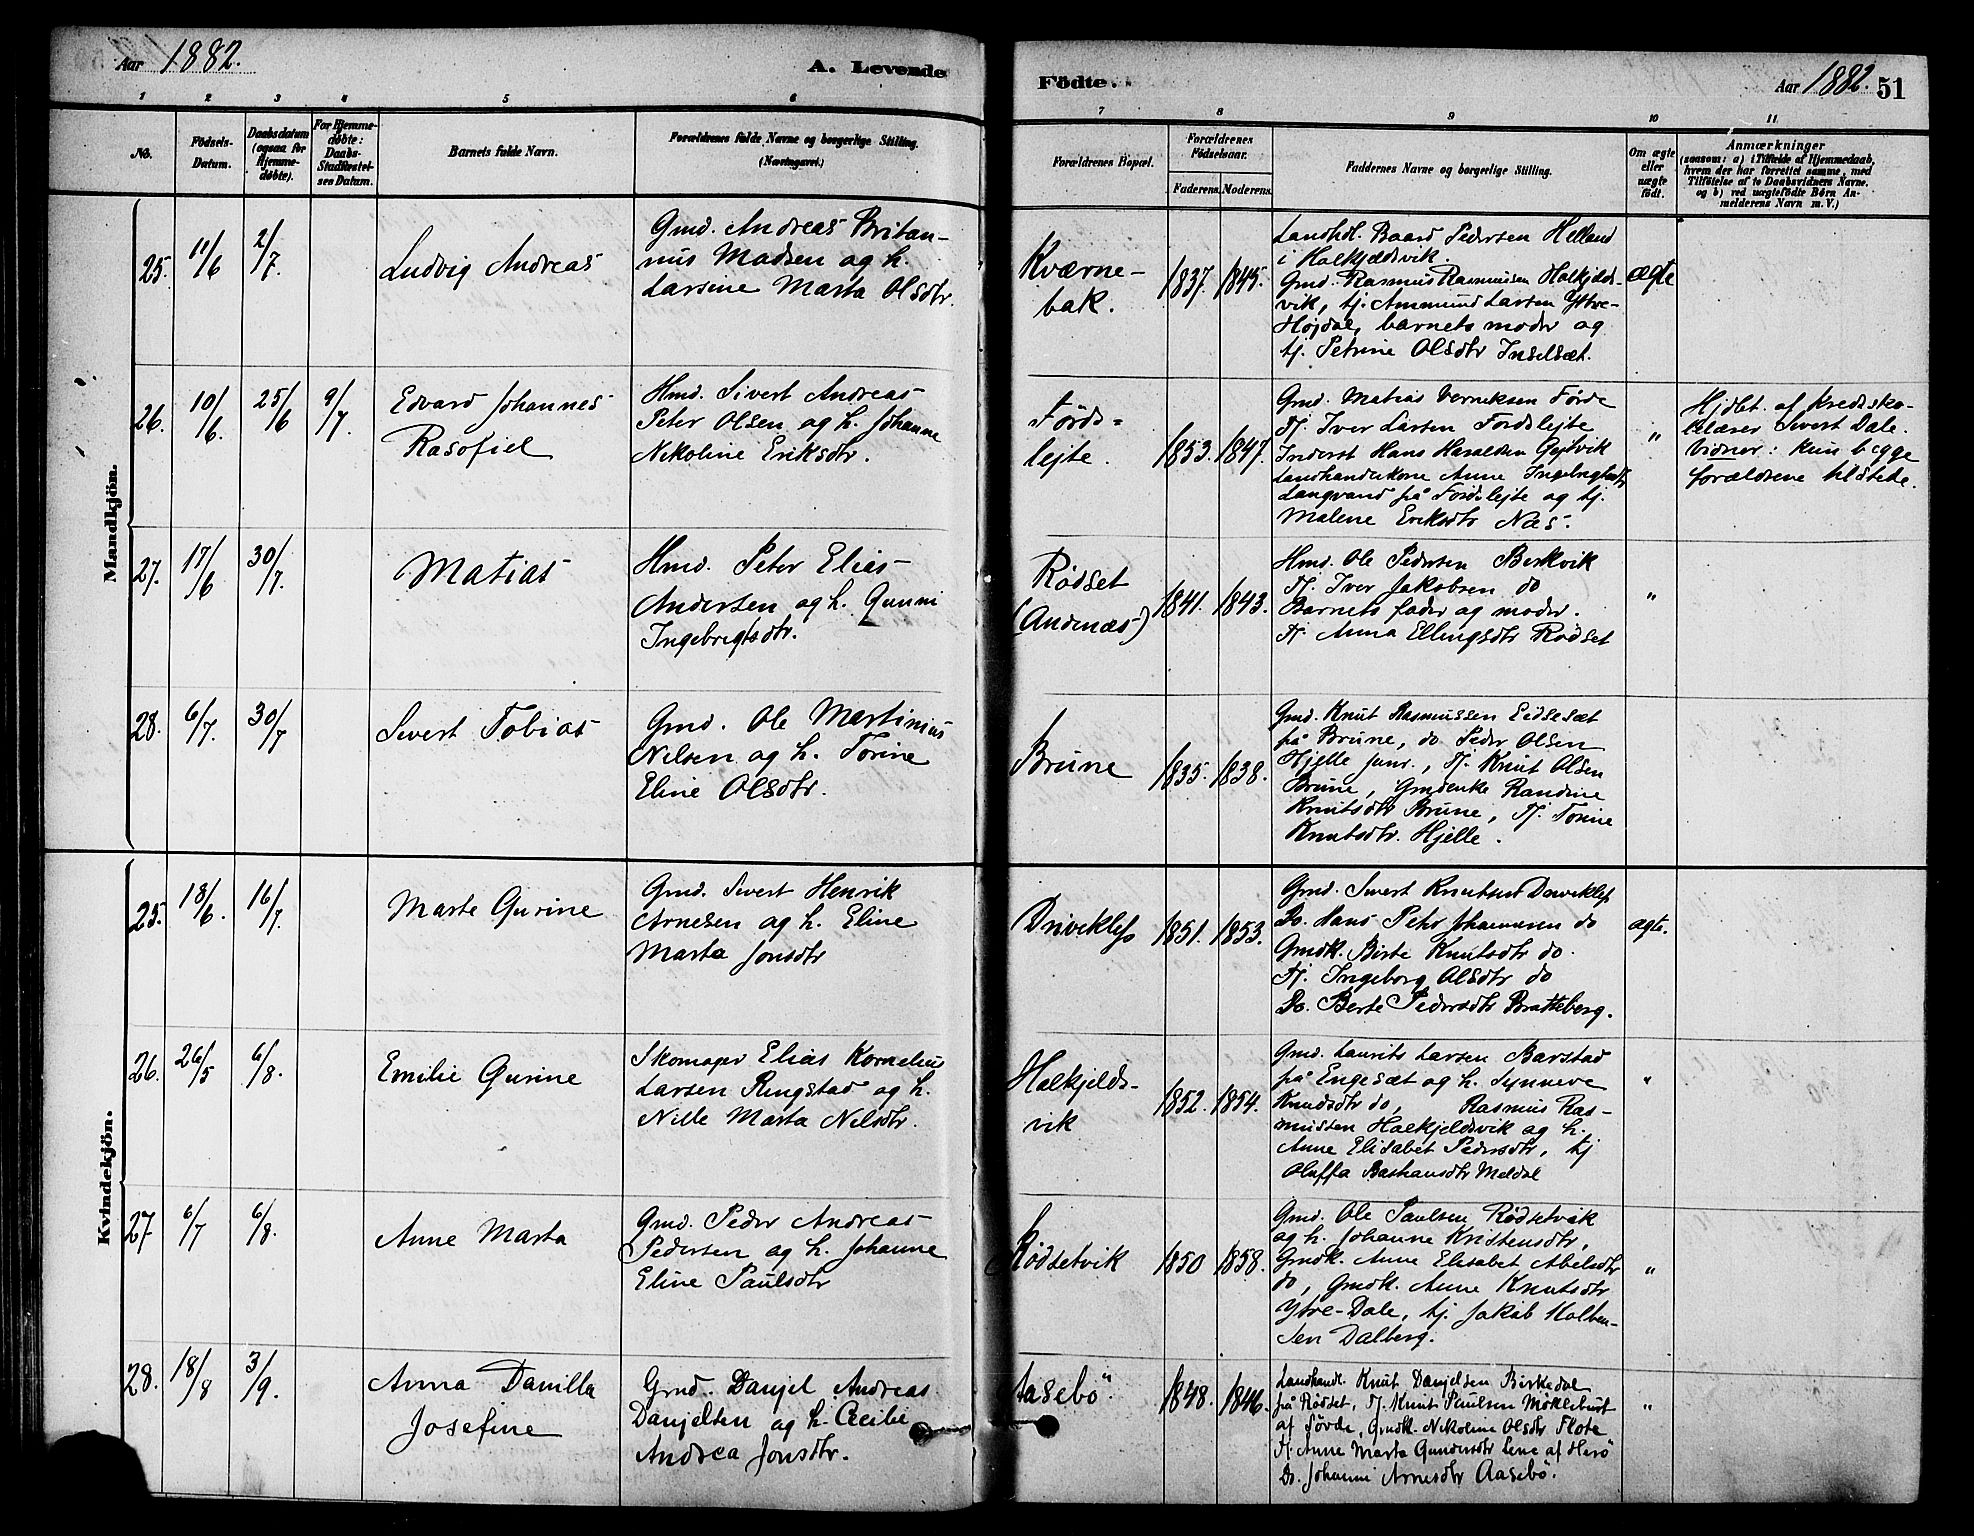 Aar 1882.
A. Levende
Födte.
Aar 1882. 51
1 2 3 4 5 6 7 8 9 10 11
No.
Födsels-
Datum.
Daabsdatum
(ogsaa for
Hjemme-
döbte).
For Hjemme-
döbte:
Daabs-
Stadfæstel-
ses Datum.
Barnets fulde Navn.
Forældrenes fulde Navne og borgerlige Stilling.
(Næringsvei.)
Forældrenes Bopæl.
Forældrenes
Födselsaar.
Faderens. Moderens.
Faddernes Navne og borgerlige Stilling.
Om ægte
eller
uægte
födt.
Anmærkninger
(saasom: a) i Tilfælde af Hjemmedaab,
hvem der har forrettet samme, med
Tilföielse af to Daabsvidners Navne.
og b) ved uægtefödte Börn An-
melderens Navn m. V.)
Mandkjön.
25. 11/6 2/7.
Ludvig Andreas
Gmd. Andreas Britan-
nus Madsen og h.
Larsine Marta Olsdtr.
Kværne-
bak.
1837. 1845.
Landhdl. Baard Pedersen Helland
i Halkjeldsvik.
Gmd. Rasmus Rasmussen Halkjelds-
vik, tj. Ammund Larsen Ytre-
Højdal, barnets moder og
tj. Petrine Olsdtr Inselsæt.
ægte
26. 10/6. 25/6 9/7.
Edvard Johannes
Rasofiel
Hmd. Sivert Andreas
Peter Olsen og h. Johanne
Nikoline Eriksdtr.
Førds-
lejte.
1853. 1847.
Gmd. Matias Verniksen Førde
Tj. Iver Larsen Fordslejte
Inderst Hans Haraldsen Gjitvik
Landhandlerkone Anne Ingebrigtsdtr
Langvand på Fordslejte og tj.
Malene Eriksdtr Næs.
"
Hjdbt. af Kredssko-
lelærer Sivert Dale.
Vidner: kun begge
forældrene tilstede.
27. 17/6 30/7.
Matias
Hmd. Peter Elias
Andersen og h. Gunni
Ingebrigtsdtr.
Rødset
(Andenæs)
1841. 1843.
Hmd. Ole Pedersen Berkvik
Tj. Iver Jakobsen do
Barnets fader og moder.
Tj. Anna Ellingsdtr Rødset
"
28. 6/7. 30/7
Sivert Tobias
Gmd. Ole Martinius
Nilsen og h. Torine
Eline Olsdtr.
Brune
1835. 1838.
Gmd. Knut Rasmussen Eidsesæt
på Brune, do Peder Olsen
Hjelle junr., Tj. Knut Olsen
Brune, Gmdenke Randine
Knutsdtr Brune, Tj. Torine
Knutsdtr. Hjelle.
Kvindekjön.
25. 18/6. 16/7.
Marte Gurine
Gmd. Sivert Henrik
Arnesen og h. Eline
Marta Jonsdtr
Driveklep
1851. 1853.
Gmd. Sivert Knutsen Driveklep
Do. Hans Peter Johannesen do
Gmdk. Birte Knutsdtr do.
Tj. Ingeborg Olsdtr do
Do. Berte Pedersdtr Bratteberg.
ægte.
26. 26/5 6/8.
Emilie Gurine
Skomager Elias Kornelius
Larsen Ringstad og h.
Nille Marta Nilsdtr.
Halkjelds-
vik
1852. 1854.
Gmd. Laurits Larsen Barstad
på Engesæt og h. Synneve
Knudsdtr do, Rasmus Ras-
mussen Halkjeldsvik og h.
Anne Elisabet Pedersdtr, tj
Oluffa Bastiansdtr Meldal
"
27 6/7 6/8.
Anne Marta
Gmd. Peder Andreas
Pedersen og h. Johanne
Eline Paulsdtr
Rødsetvik
1850 1858.
Gmd. Ole Paulsen Rødsetvik
og h. Johanne Kristensdtr,
Gmdk. Anne Elisabet Abelsdtr
do, Gmdk. Anne Knutsdtr
Ytre-Dale, tj. Jakob Kolben-
sen Dalberg.
"
28. 18/8 3/9.
Anna Danilla
Josefine
Gmd. Danjel Andreas
Danjelsen og h. Cecilie
Andrea Jonsdtr.
Aasebö
1848. 1846.
Landhandl. Knut Danjelsen Birkedal
på Rødset, Tj. Knut Paulsen Møklebust
af Førde, Gmdk. Nikoline Olsdtr Flote
Tj. Anne Marta Gundersdtr Leine af Herø
Do. Johanne Arnesdtr Aasebö.
"